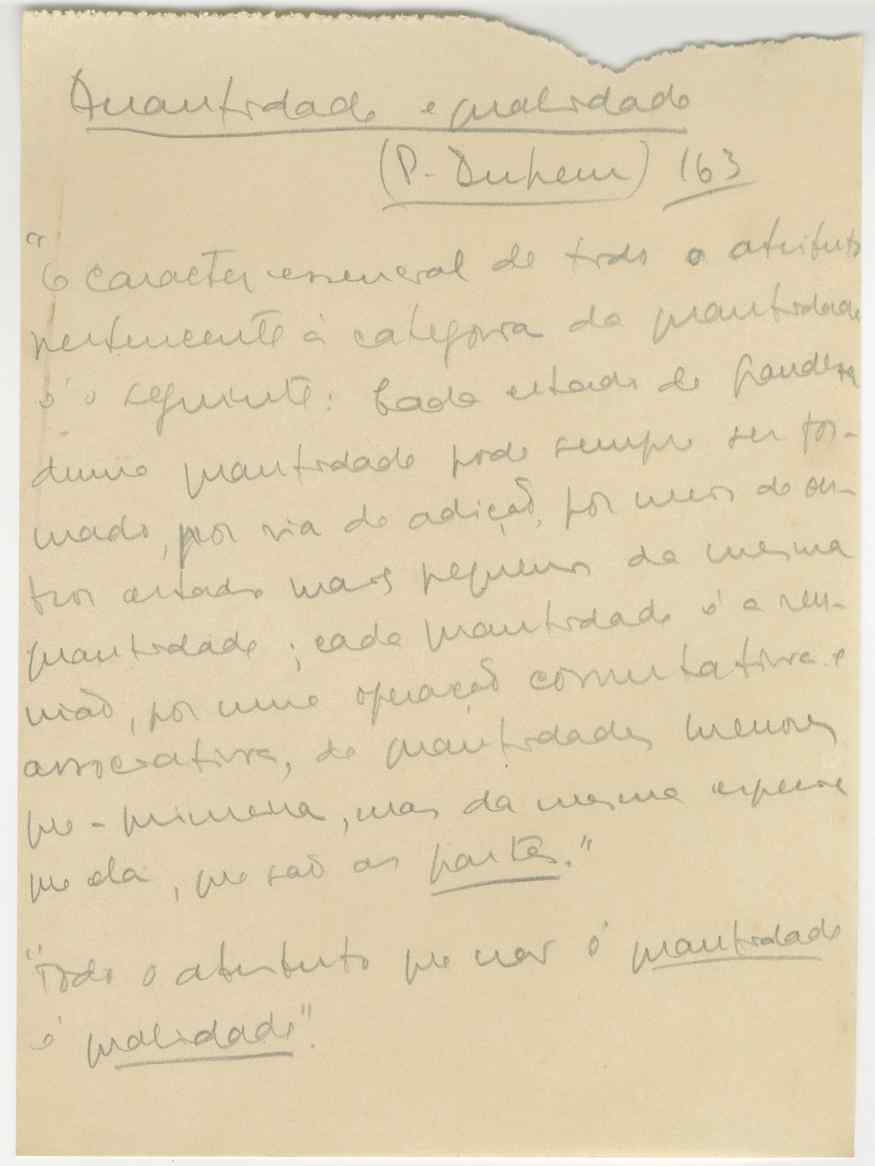 Quantidade e qualidade
(P. Duhem) 163
"O caracter essencial de todo o atributo
pertencente á categoria da quantidade
é o seguinte: Cada estado de grandeza
duma quantidade pode sempre ser for-
mado, por via de adição, por meio de ou-
tros estados mais pequenos da mesma
quantidade; cada quantidade é a reu-
nião, por uma operação comutativa e
associativa, de quantidades menores
que a primeira, mas da mesma espécie
que ela, que são as partes."
"Todo o atributo que não é quantidade
é qualidade".